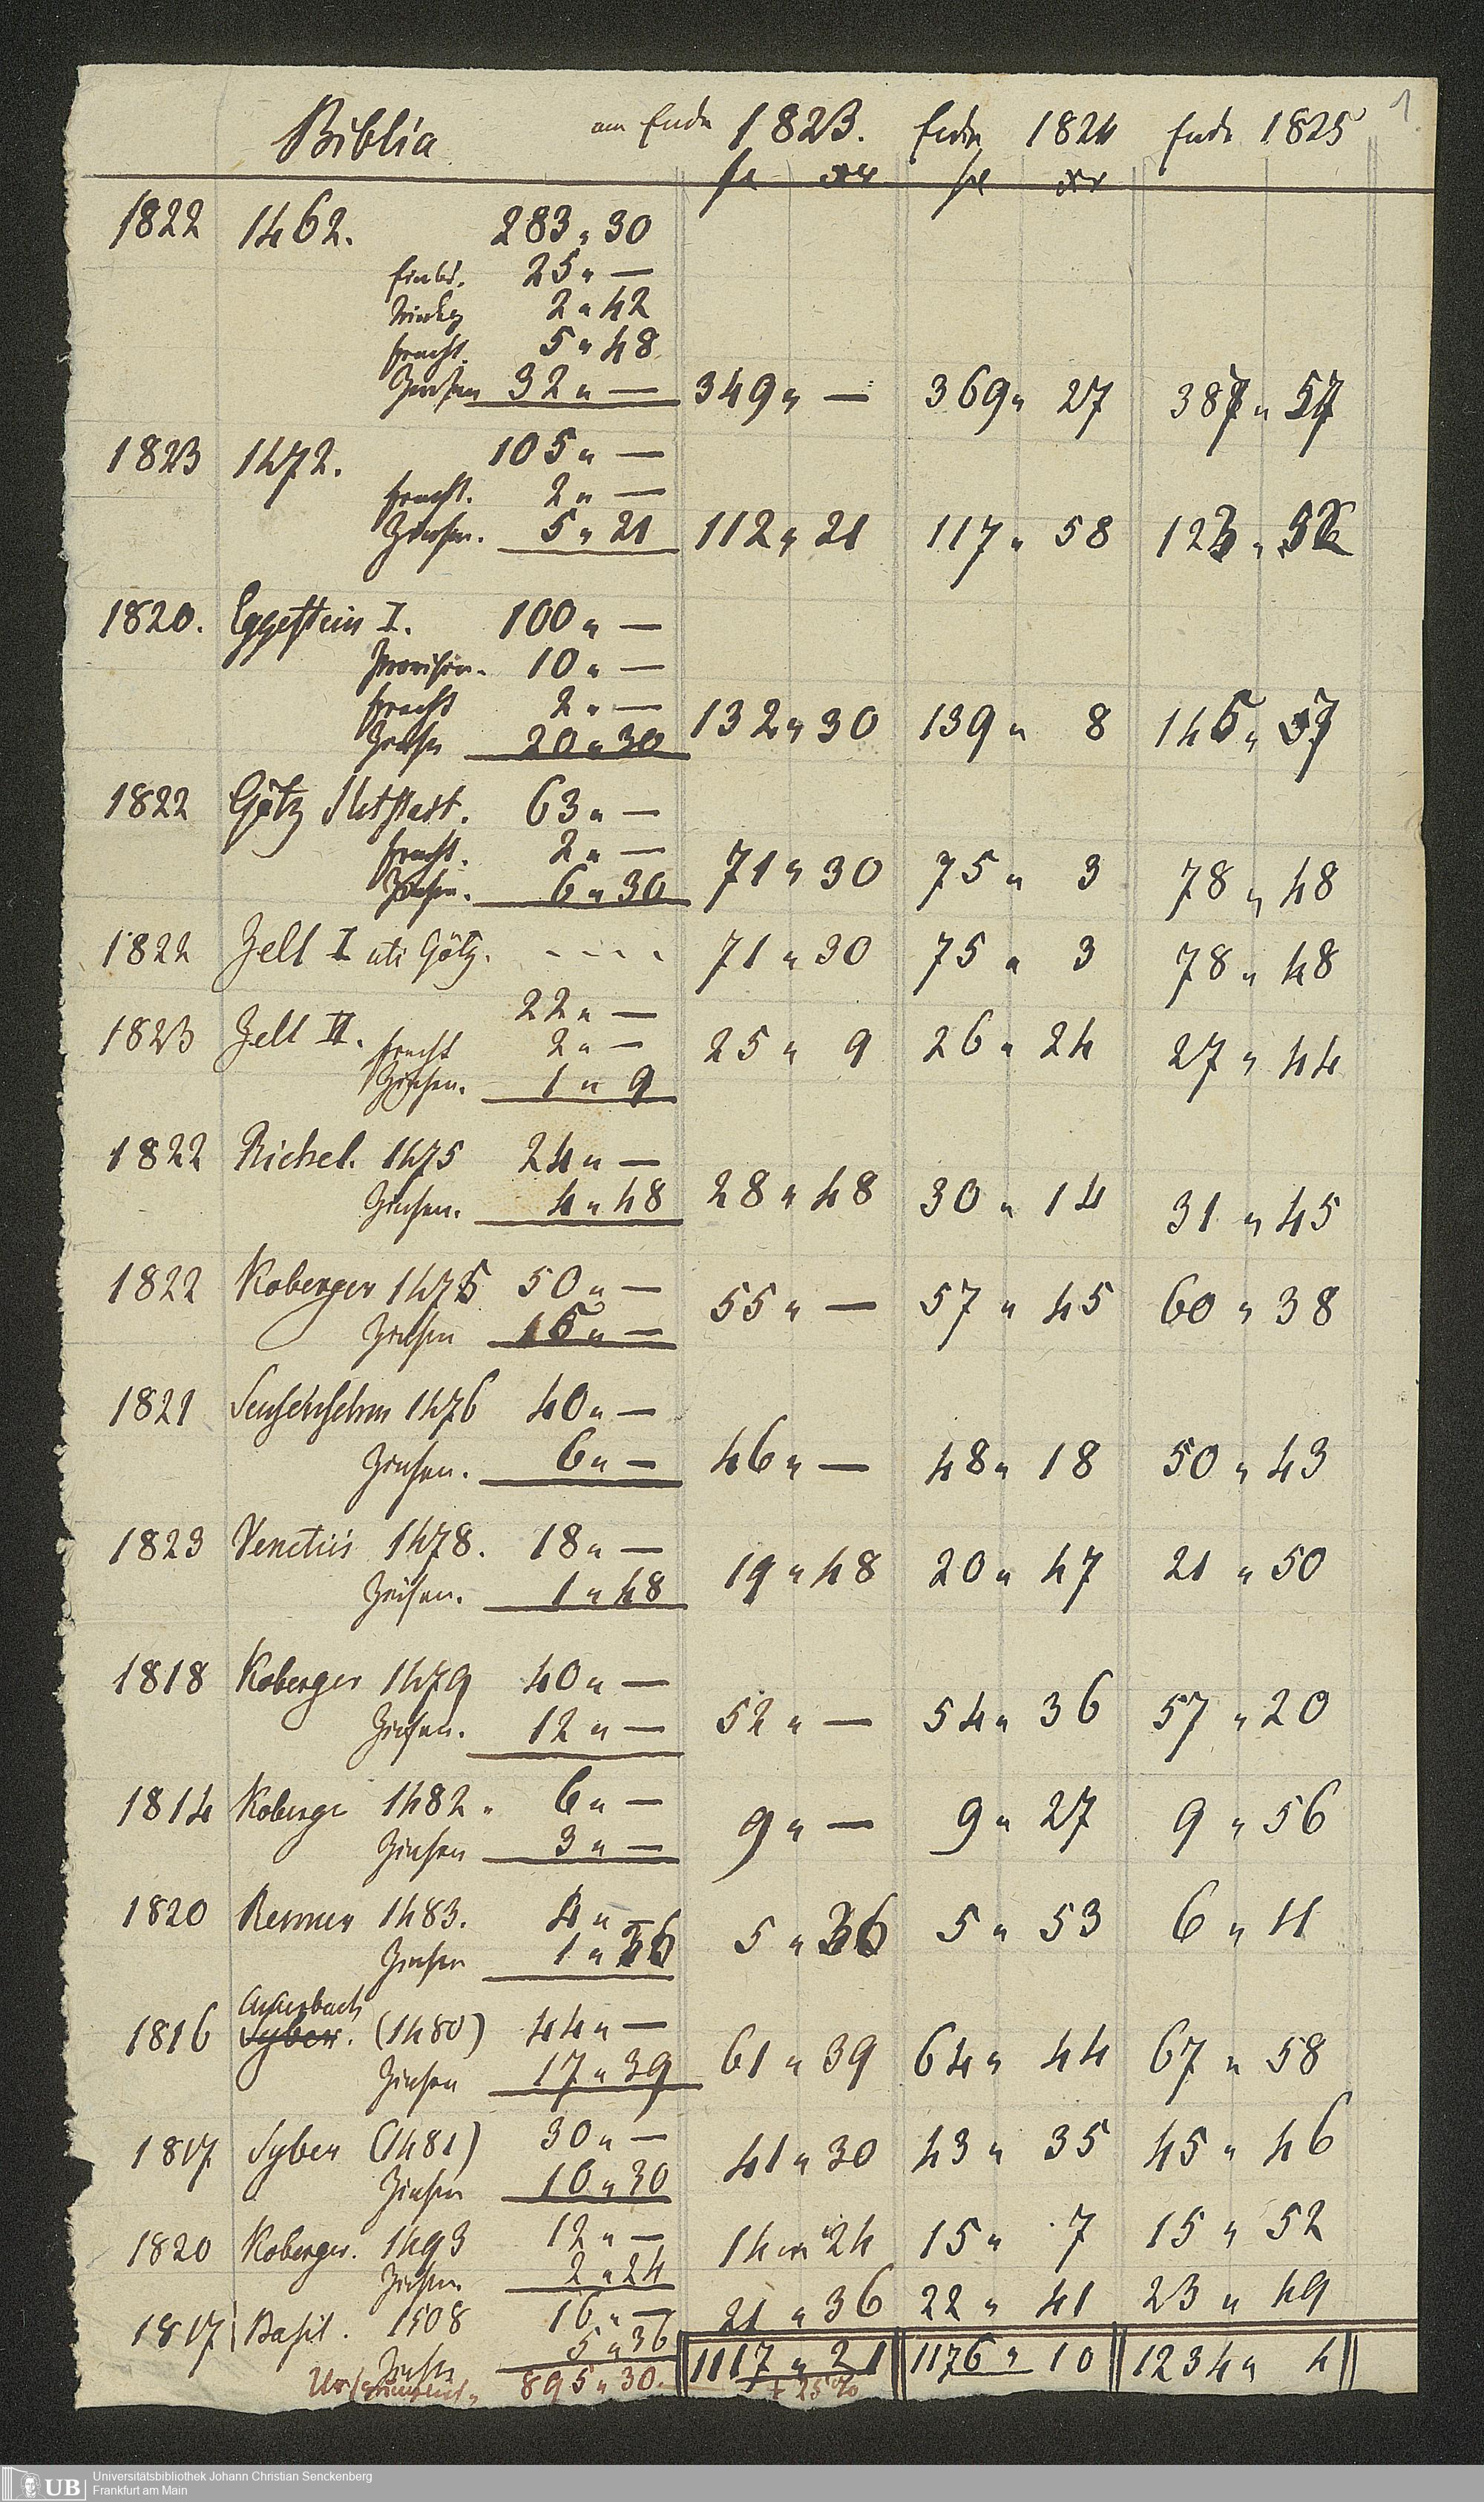 1
Biblia am Ende 1823. Ende 1824 Ende 1825
fl xr fl xr
1822 1462. 283 " 30
Einbd. 25 " —
2 " 42
Fracht. 5 " 48
Zinsen 32 " — 349 " — 369 " 27 387 " 57
1823 1472. 105 " —
Fracht. 2 " —
Zinsen. 5 " 21 112 " 21 117 " 58 123 "
1820. Eggestein I. 100 " —
Provision. 10 " —
Fracht 2 " —
Zinsen 20 " 30 132 " 30 139 " 8 145 " 57
1822 Götz 63 " —
Fracht. 2 " —
Zinsen. 6 " 30 71 " 30 75 " 3 78 " 48
1822 Zell I uti Götz. - - - - 71 " 30 75 " 3 78 " 48
1823 Zell II. 22 " —
Fracht 2 " — 25 " 9 26 " 24 27 " 44
Zinsen. 1 " 9
1822 Richel. 1475 24 " —
Zinsen. 4 " 48 28 " 48 30 " 14 31 " 45
1822 Koberger 1475 50 " —
Zinsen 5 " — 55 " — 57 " 45 60 " 38
1821 Sensenschm 1476 40 " —
Zinsen. 6 " — 46 " — 48 " 18 50 " 43
1823 Venetiis 1478. 18 " —
Zinsen. 1 " 48 19 " 48 20 " 47 21 " 50
1818 Koberger 1479 40 " —
Zinsen. 12 " — 52 " — 54 " 36 57 " 20
1814 Koberge 1482 " 6 " —
Zinsen 3 " — 9 " — 9 " 27 9 " 56
1820 1483. 4 " —
Zinsen 1 " 36 5 " 36 5 " 53 6 " 11
Amerbach
1816 Syber. (1480) 44 " —
Zinsen 17 " 39 61 " 39 64 " 44 67 " 58
1817. Syber (1481) 30 " —
Zinsen 10 " 30 41 " 30 43 " 35 45 " 46
1820 Koberger. 1493 12 " —
Zinsen 2 " 24 14 " 24 15 " 7 15 " 52
1817 Basil. 1508 16 " — 21 " 36 22 " 41 23 " 49
Zinsen 5 " 36
895 " 30. 1117 " 21 1176 " 10 1234 " 4
+ 25 %
UB Universitätsbibliothek Johann Christian Senckenberg
Frankfurt am Main